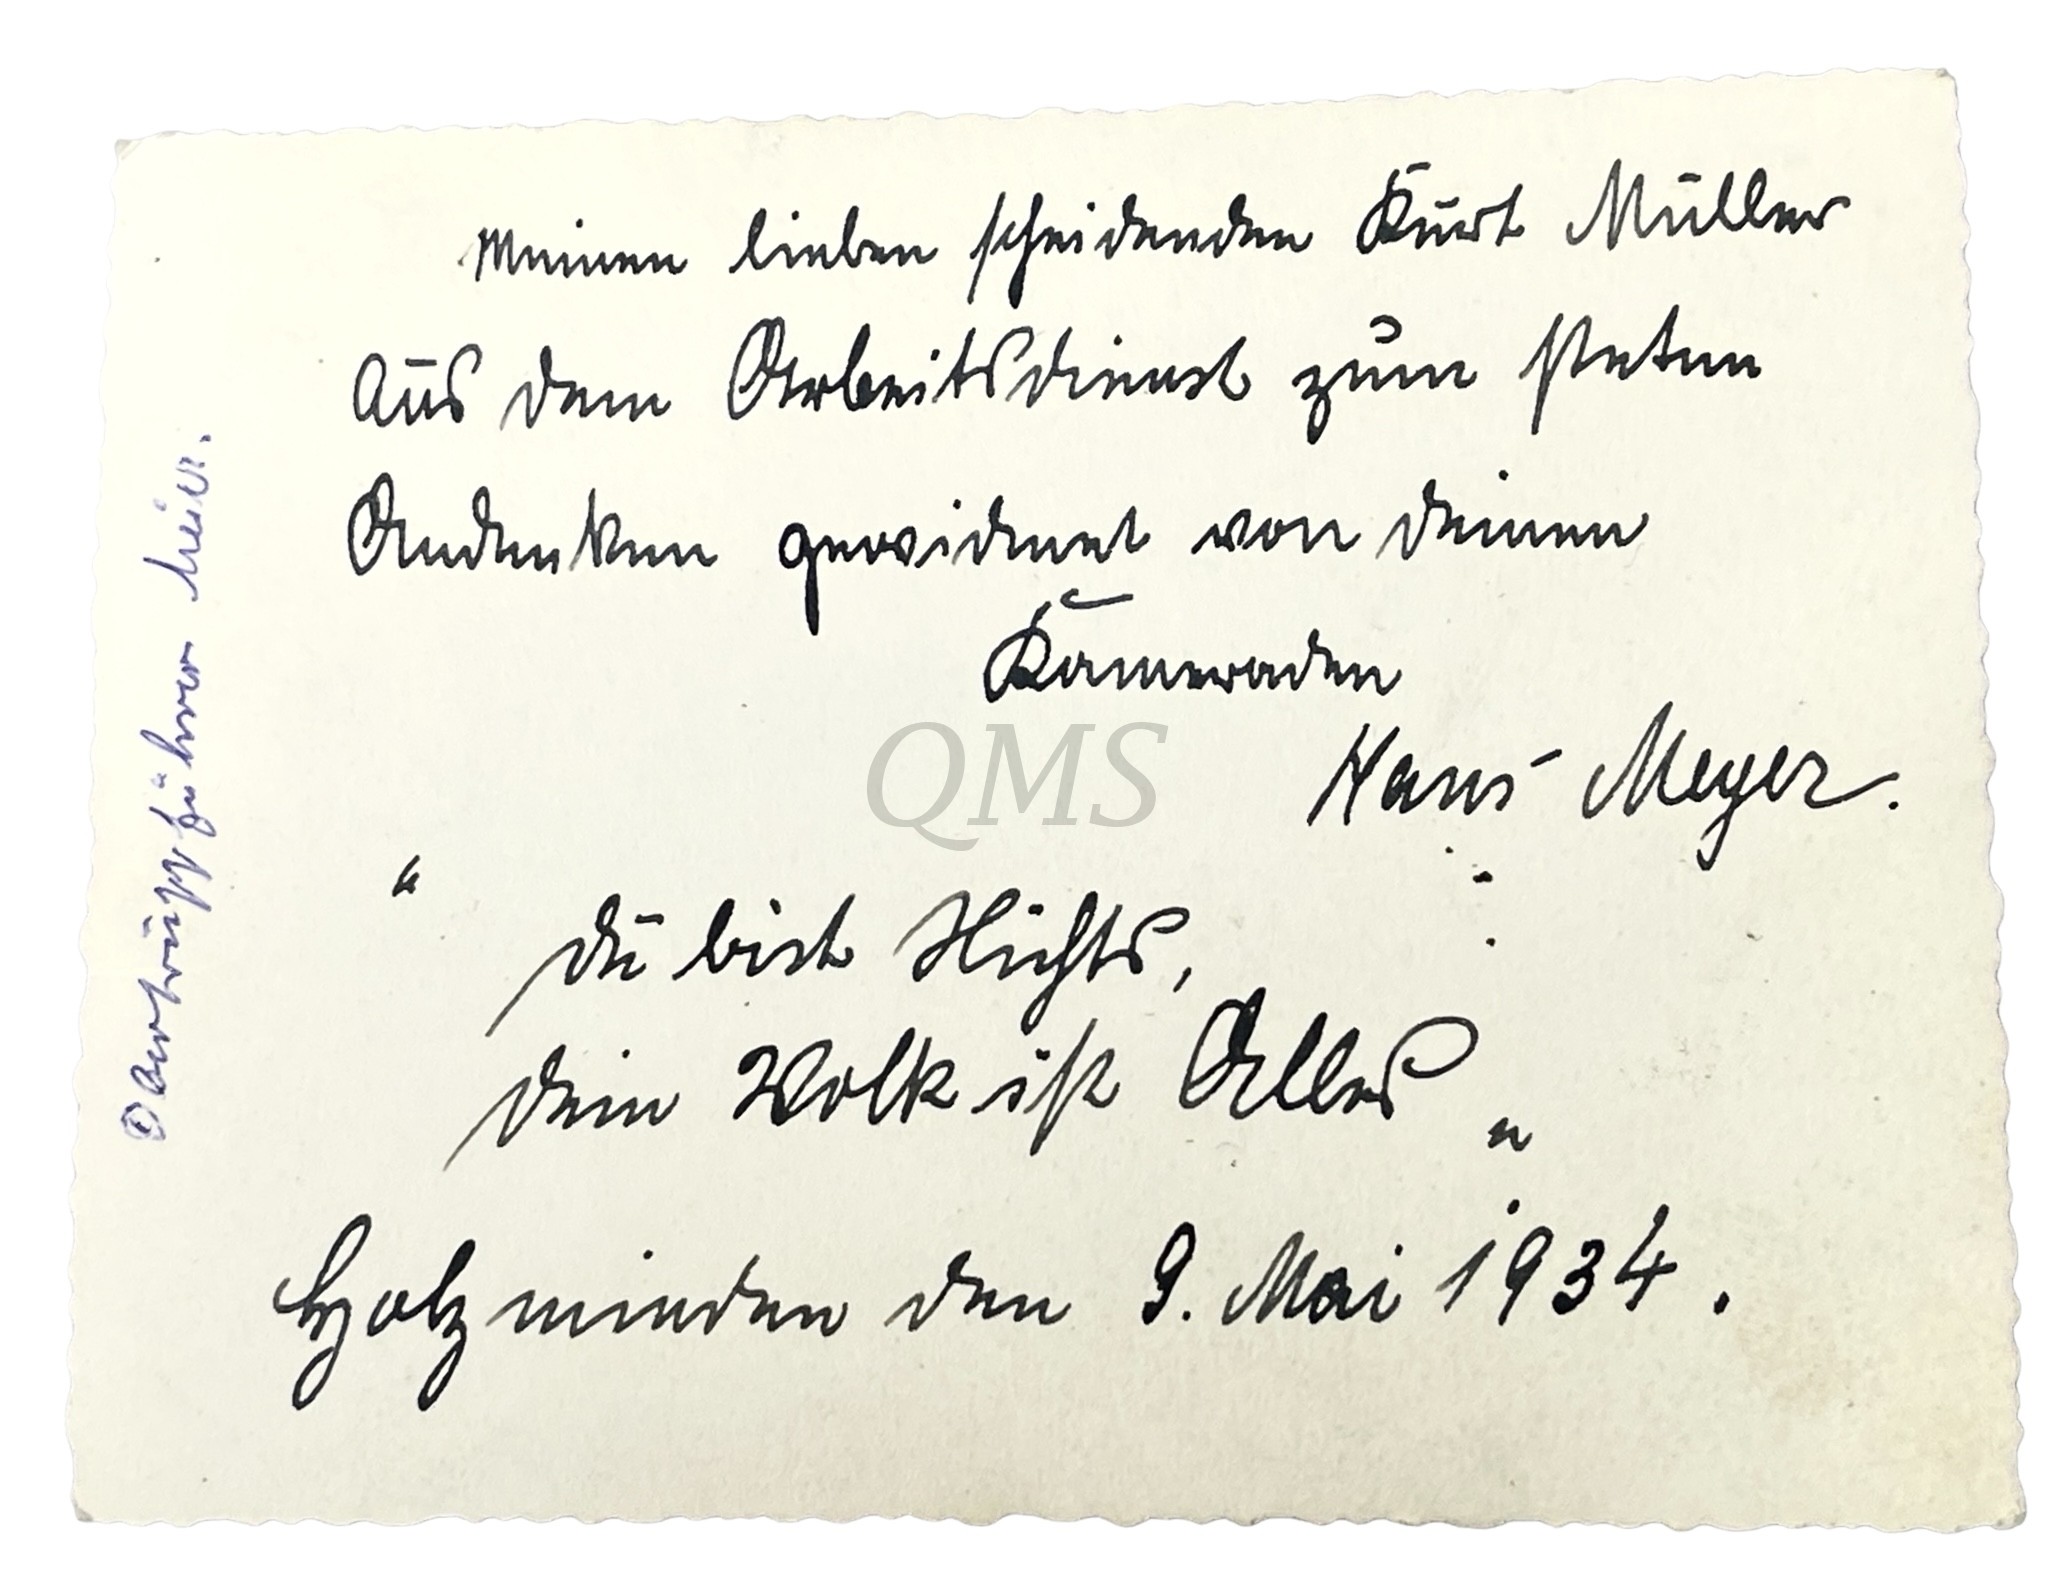 Meinen lieben scheidenden Kurt Müller
Aus dem Arbeitsdienst zum steten
Andenken gewidmet von deinen
Kameraden
Hans Meyer.
"
du bist Nichts,
dein Volk ist Alles "
Holzminden den 9. Mai 1934.
Obertruppführer Meier.
QMS